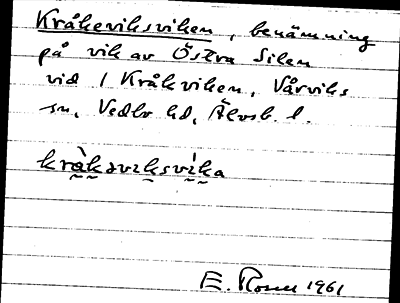 Kråkeviksviken, benämning
på vik av Östra Silen
vid 1 Kråkviken, Vårviks
sn, Vedbo hd, Älvsb. l.
kràksviksvíka
E. 1961